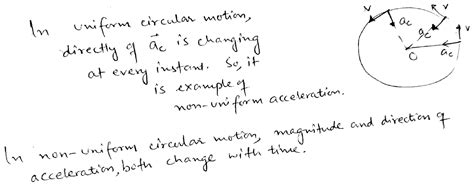 In uniform circular motion,
directly of a⃗c is changing
at every instant. So, it
is example of
non-uniform acceleration.
v
ac
v
ac
v
C
ac
In non-uniform circular motion, magnitude and direction of
acceleration, both change with time.